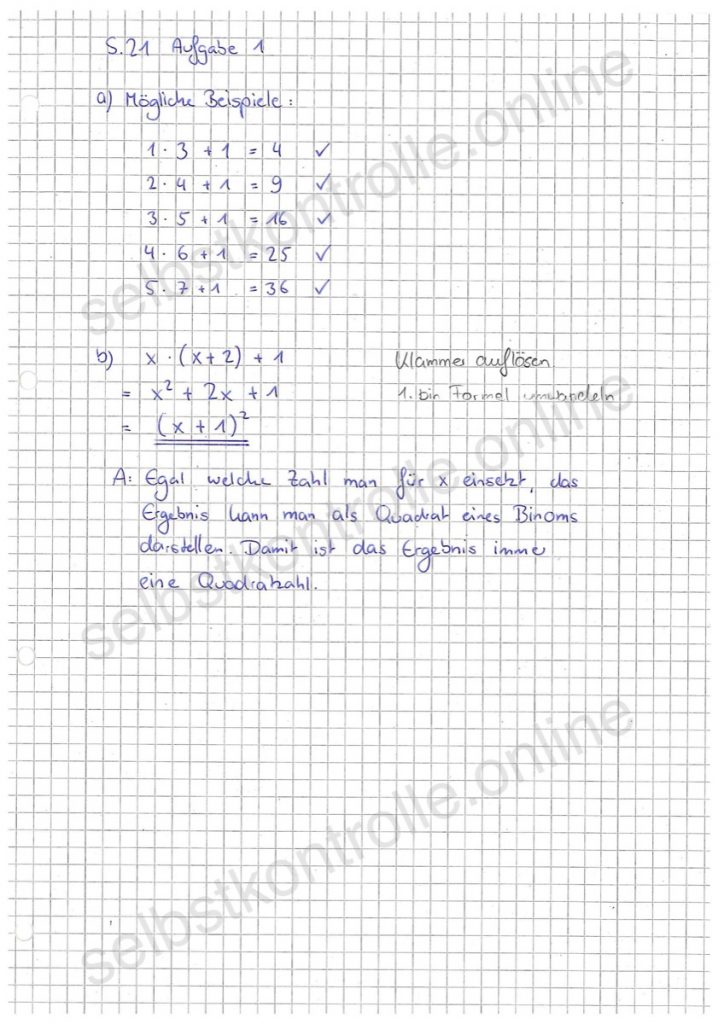 S.21 Aufgabe 1
a) Mögliche Beispiele:
1 · 3 + 1 = 4 ✓
2 · 4 + 1 = 9 ✓
3 · 5 + 1 = 16 ✓
4 · 6 + 1 = 25 ✓
5 · 7 + 1 = 36 ✓
b) x · (x + 2) + 1 Klammer auflösen
= x² + 2x + 1 1. bin Formel umwandeln
= (x + 1)²
A: Egal welche Zahl man für x einsetzt, das
Ergebnis kann man als Quadrat eines Binoms
darstellen. Damit ist das Ergebnis imme
eine Quadratzahl.
selbstkontrolle.online
selbstkontrolle.online
selbstkontrolle.online